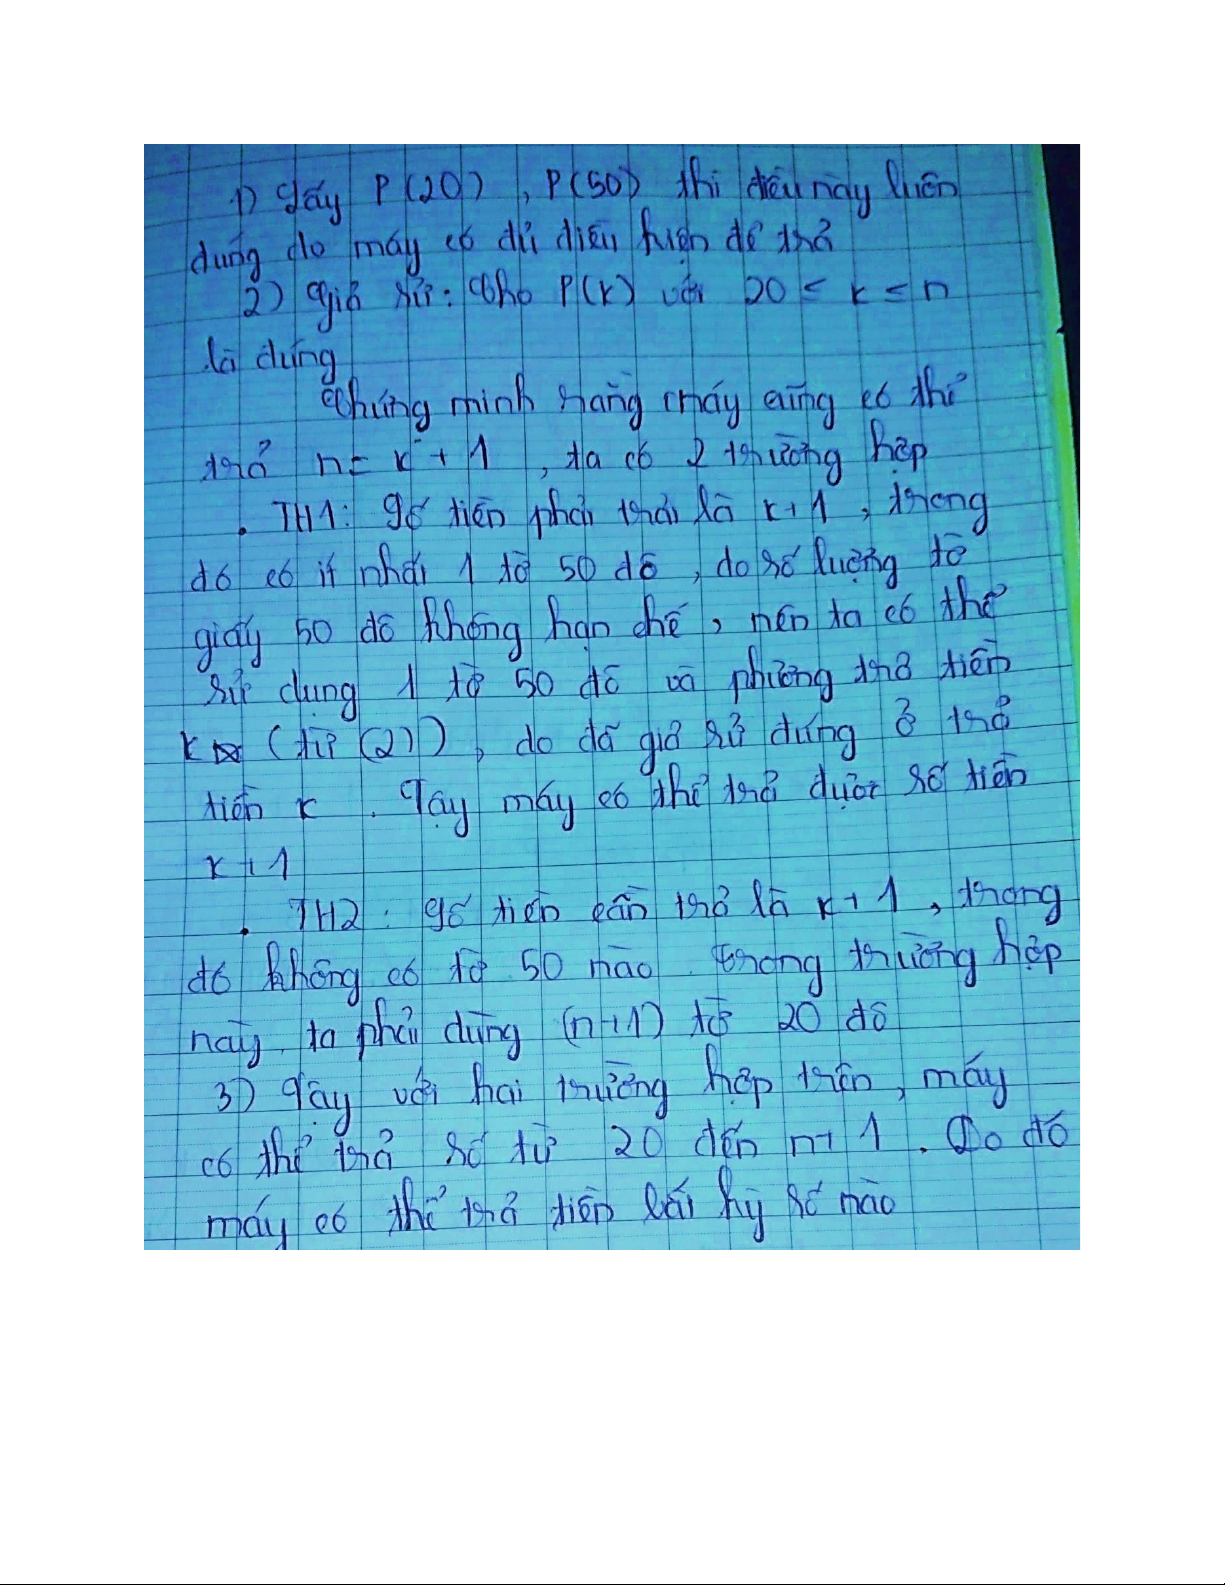 1) Lấy P(20), P(50) thì điều này luôn
đúng do máy có đủ điều kiện để trả
2) Giả sử: Cho P(k) với 20 ≤ k ≤ n
là đúng
Chứng minh rằng máy cũng có thể
trả n = k + 1, ta có 2 trường hợp
. TH1: Số tiền phải trải là k+1, trong
đó có ít nhất 1 tờ 50 đô, do số lượng tờ
giấy 50 đô không hạn chế, nên ta có thể
sử dụng 1 tờ 50 đô và phương trả tiền
k (từ (2)), do đã giả sử đúng ở trả
tiền k. Vậy máy có thể trả được số tiền
k+1
. TH2: Số tiền cần trả là k+1, trong
đó không có tờ 50 nào. trong trường hợp
này, ta phải dùng (n+1) tờ 20 đô
3) Vậy với hai trường hợp trên, máy
có thể trả số từ 20 đến n+1. Do đó
máy có thể trả tiền bất kỳ số nào